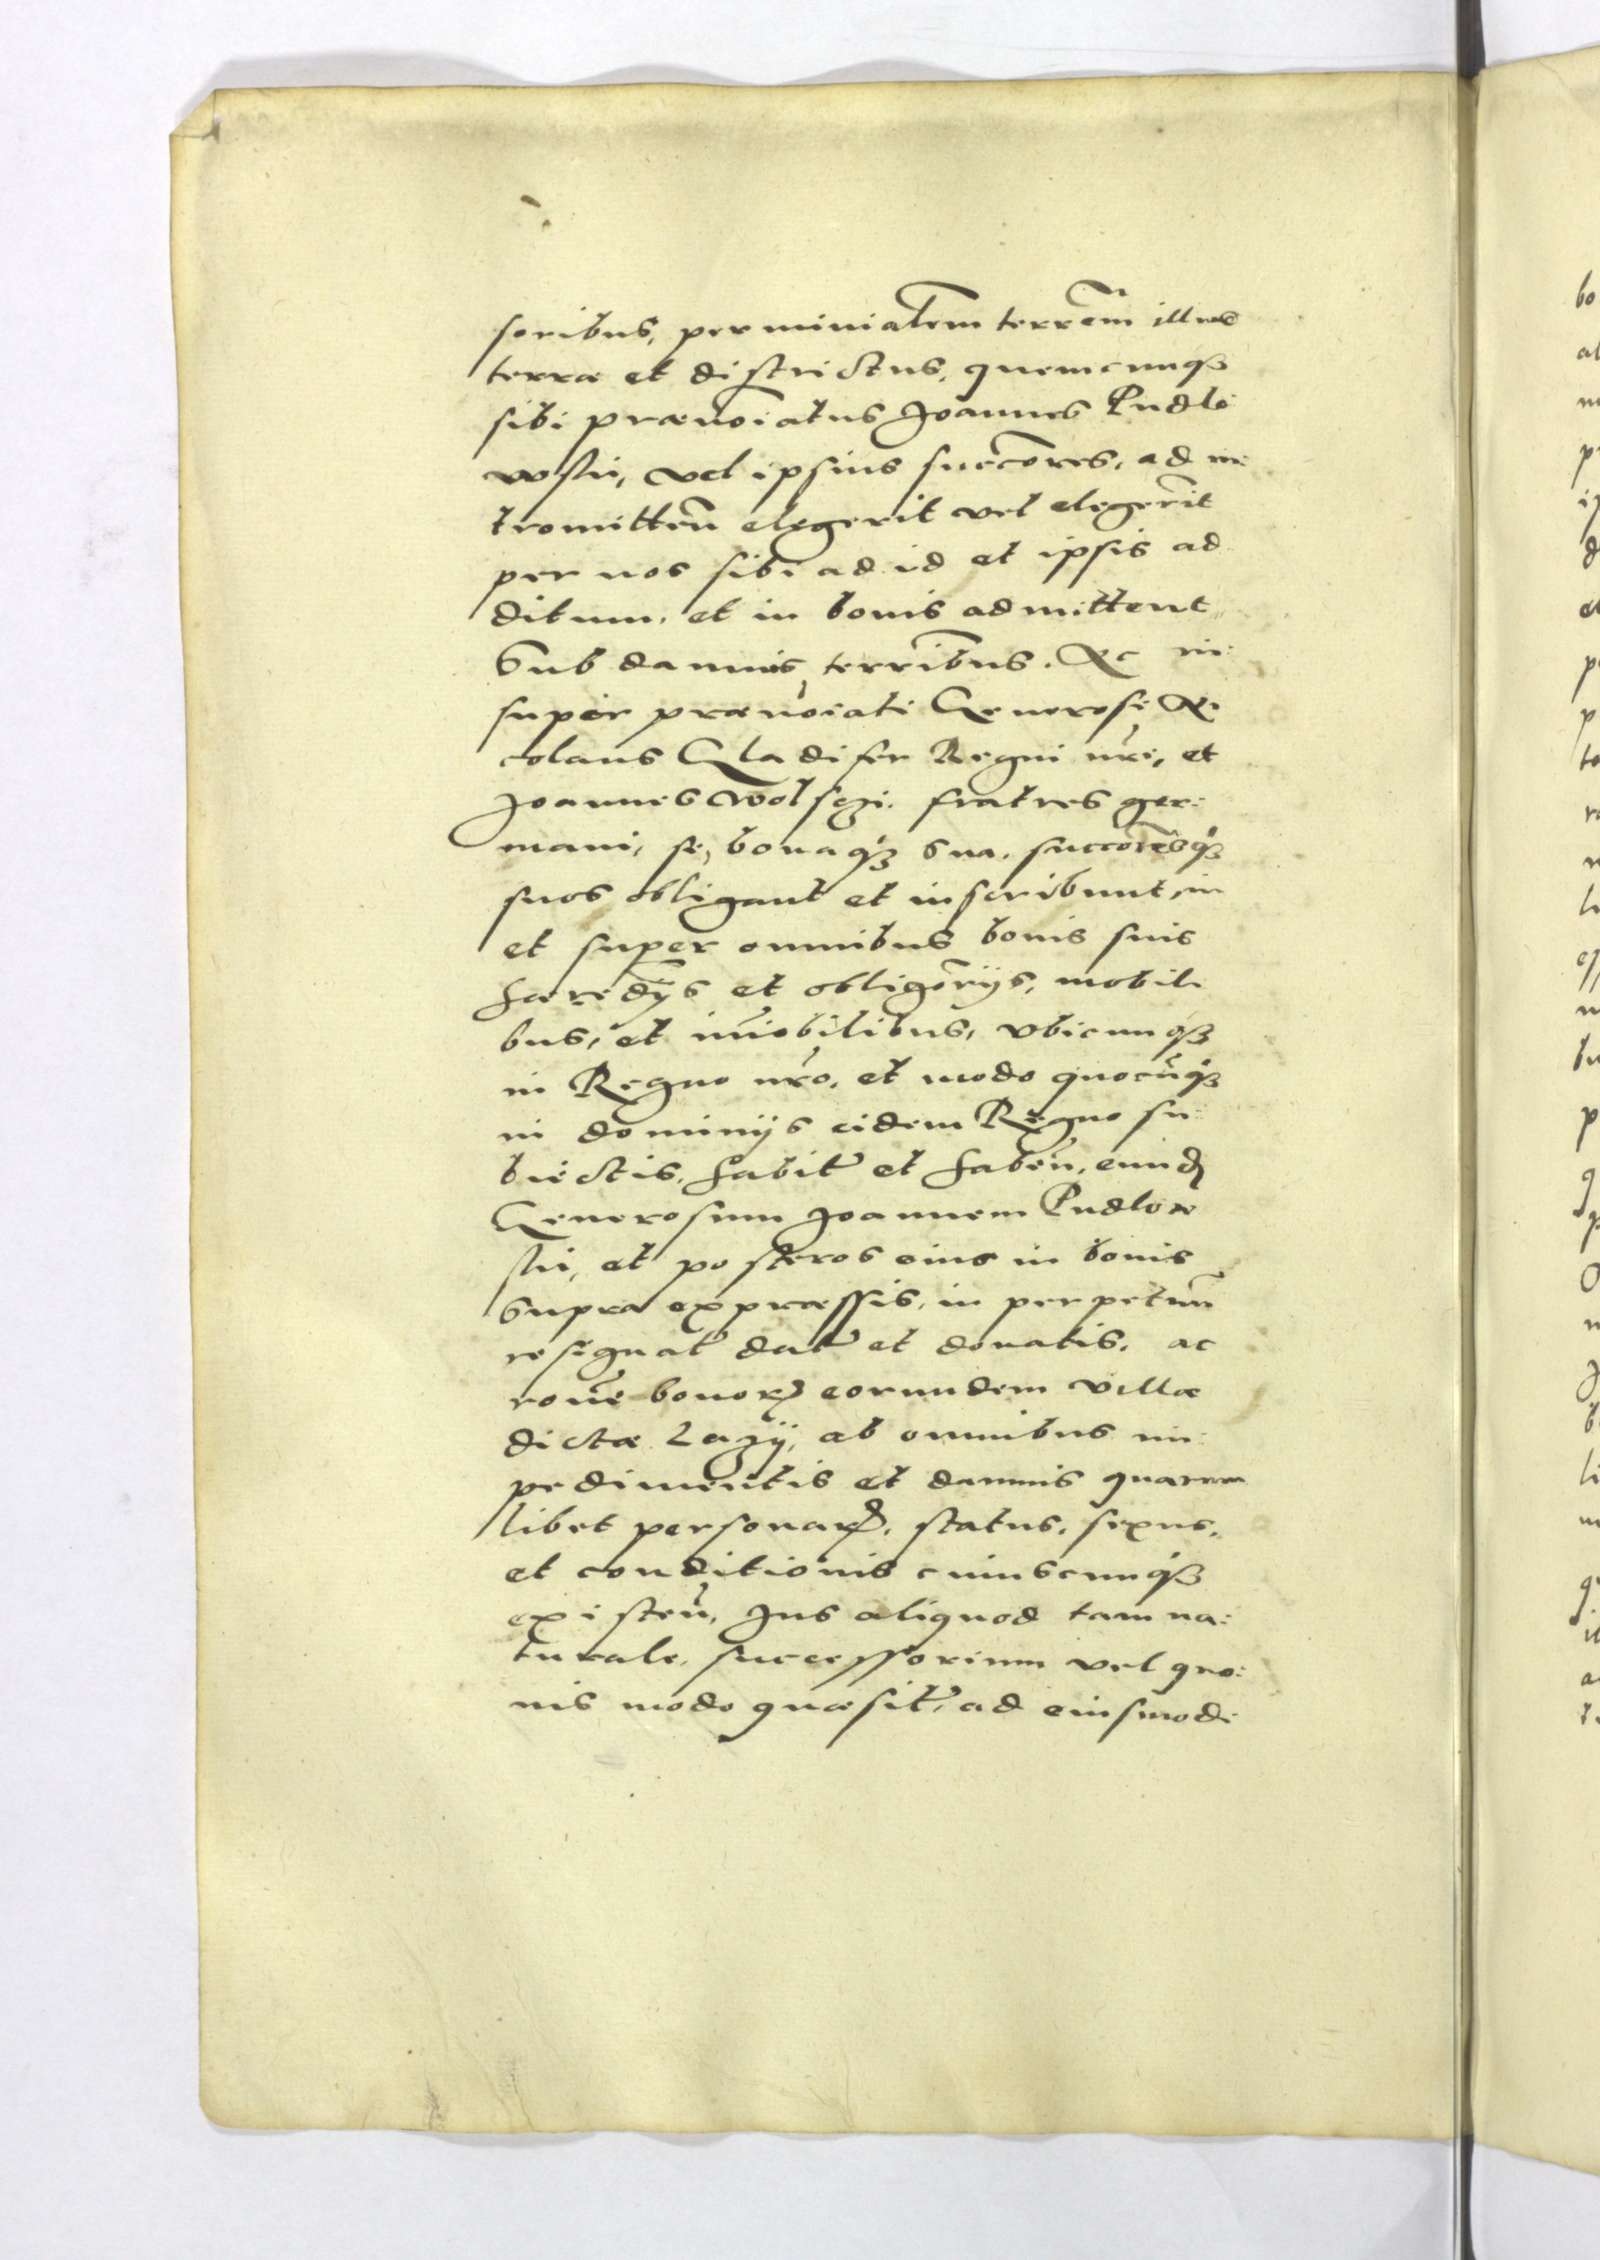 soribus, per minialem terrem̃ illius
terræ et districtus, quemcunq₃
sibi prænoĩatus Joannes Pudlo
wski, vel ipsius succores, ad in
tromitteñ elegerit vel elegerĩt
per nos sibi ad id et ipsis ad
ditum, et in bonis admittent
Sub damnis terribus. Ac in:
super prænoĩati Generosi Ni
colaus Gladifer Regni nr̃i, et
Joannes Wolsczi. fratres ger:
mani, se, bonaq₃ sua, succoresq₃
suos obligant et inscribunt, in
et super omnibus bonis suis
hæredijs et obligorijs, mobili
bus, et im̃obilibus, vbicunq₃
in Regno nr̃o, et modo quocũq₃
in dominijs eidem Regno su:
biectis, habit̃ et habeñ, eund̃
Generosum Joannem Pudlow
ski, et posteros eius in bonis
supra expræssis, in perpetuũ
resignat̃ dat̃ et donatis, ac
rõne bonor̃ eorundem villæ
dictæ Lazij, ab omnibus im:
pedimentis et damnis quarum
libet personar̃, status, sexus,
et conditionis cuiuscunq₃
existeñ, Jus aliquod tam na:
turale, successorium vel quo:
uis modo quæsit̃, ad eiusmodi